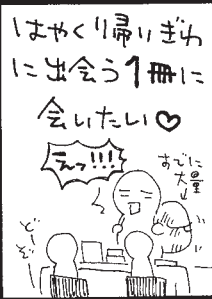 はやくり帰りぎわ
に出会う1冊に
会いたい♡
えっ!!!
おでに
大量
どーぞー